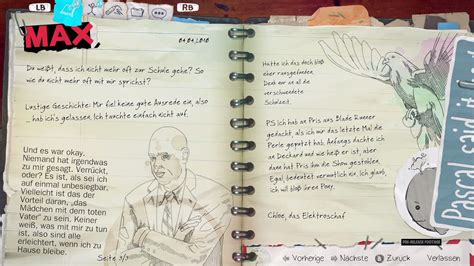 LB
RB
MAX,
04.04.2010
Du weißt, dass ich nicht mehr oft zur Schule gehe? So
wie du nicht mehr oft mit mir sprichst?
Lustige Geschichte: Mir fiel keine gute Ausrede ein, also
hab ich's gelassen. Ich tauchte einfach nicht auf.
Und es war okay.
Niemand hat irgendwas
zu mir gesagt. Verrückt,
oder? Es ist, als sei ich
auf einmal unbesiegbar.
Vielleicht ist das der
Vorteil daran, „das
Mädchen mit dem toten
Vater" zu sein. Keiner
weiß, was mit mir zu tun
ist, also sind alle
erleichtert, wenn ich zu
Hause bleibe.
Hätte ich das doch bloß
eher rausgefunden.
Denk mal an all die
verschwendete
Schulzeit.
PS Ich hab an Pris aus Blade Runner
gedacht, als ich mir das letzte Mal die
Perle geputzt hab. Anfangs dachte ich
an Deckard und wie heiß er ist, aber
dann hat Pris ihm die Show gestohlen.
Egal, bedeutet vermutlich nix, ich glaub,
ich will bloß ihren Pony.
Chloe, das Elektroschaf
Pascal said it
Seite 3/3
Vorherige
Nächste
Zurück
Verlassen
PRE-RELEASE FOOTAGE